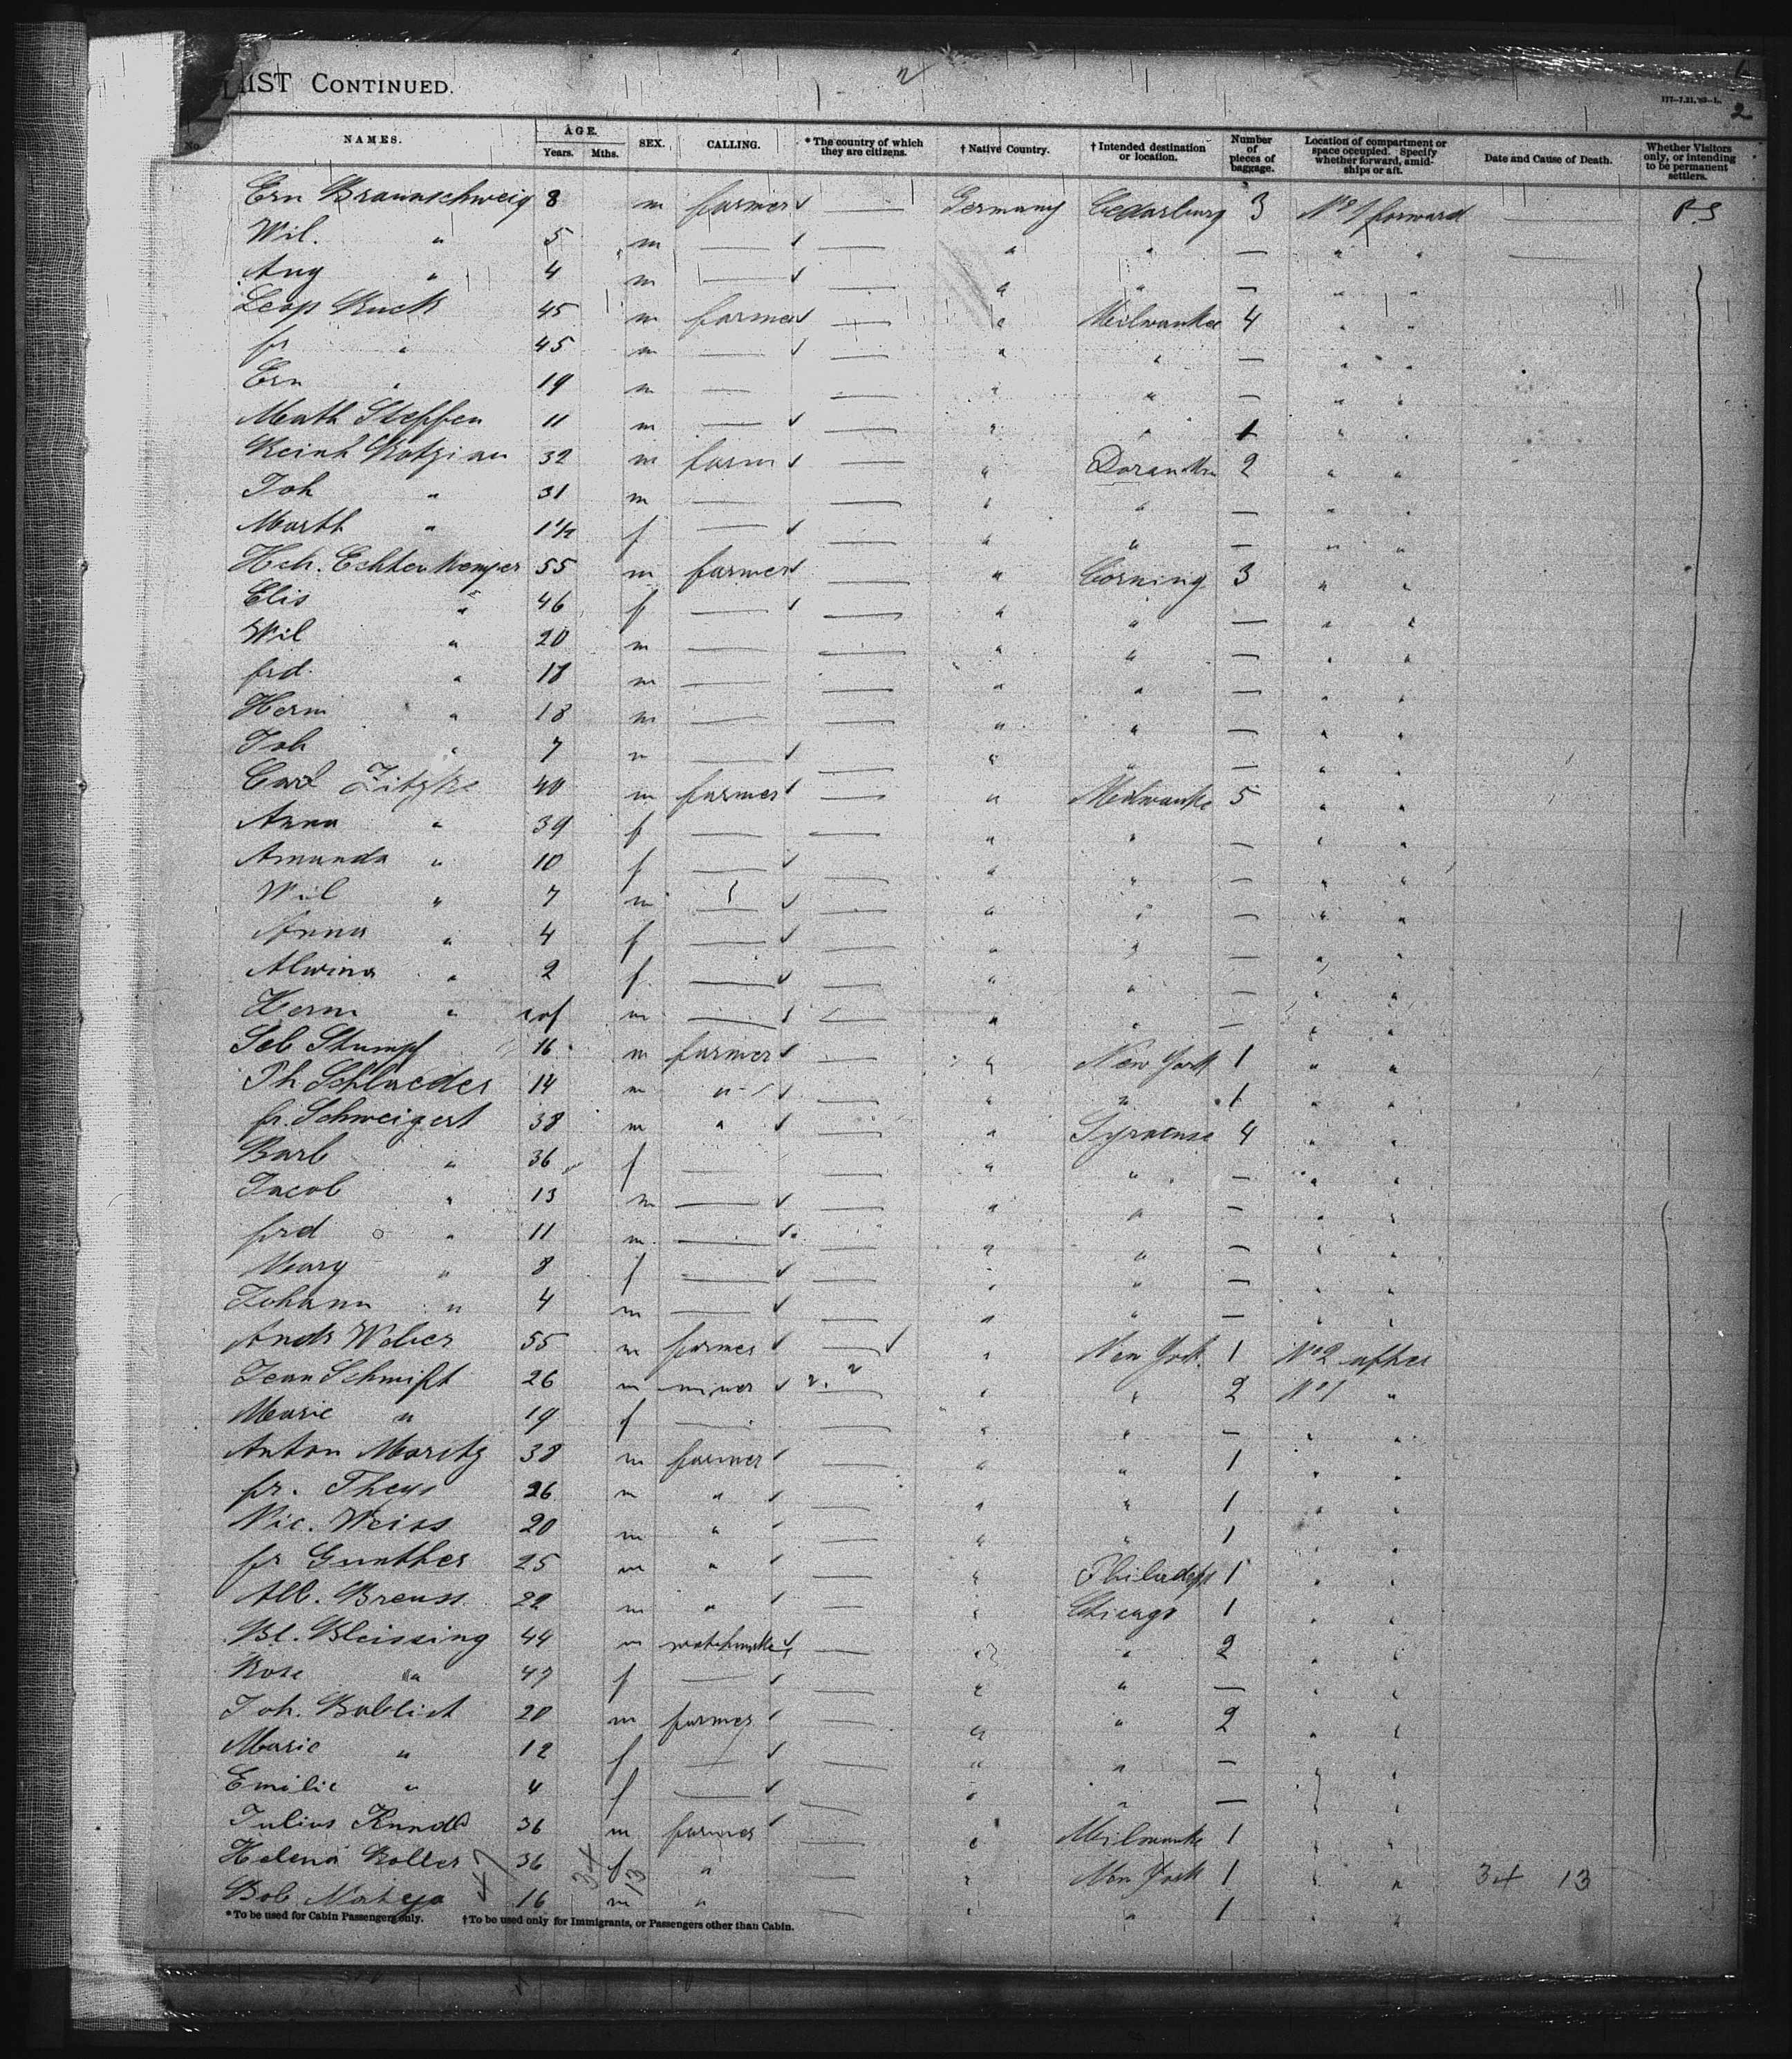 LIST CONTINUED.
2
177-7,21,'92-L.
2
No. NAMES. AGE. Years. Mths. SEX. CALLING. * The country of which they are citizens. † Native Country. † Intended destination or location. Number of pieces of baggage. Location of compartment or space occupied. Specify whether forward, amidships or aft. Date and Cause of Death. Whether Visitors only, or intending to be permanent settlers.
Ern Braunschweig 8 m farmer — Germany Cedarburg 3 No 1 forward — P.S
Wil. " 5 m — — " " — " " —
Aug " 4 m — — " " — " "
Leop Ruck 45 m farmer — " Milwaukee 4 " "
fr " 45 m — — " " — " "
Ern " 19 m — — " " — " "
Math Steffen 11 m — — " " 1 " "
Reinh Rotzian 32 m farm — " 2 " "
Joh " 31 m — — " " — " "
Marth " 1 1/2 f — — " " — " "
Hch. Echterkemper 55 m farmer — " Corning 3 " "
Elis " 46 f — — " " — " "
Wil " 20 m — — " " — " "
frd. " 18 m — — " " — " "
Herm " 18 m — — " " — " "
Joh " 7 m — — " " — " "
Carl Zitzke 40 m farmer — " Milwauke 5 " "
Anna " 39 f — — " " — " "
Amanda " 10 f — — " " — " "
Wil " 7 m — — " " — " "
Anna " 4 f — — " " — " "
Alwina " 2 f — — " " — " "
Herm " inf m — — " " — " "
Seb Stumpf 16 m farmer — " New York 1 " "
Ph Schlaeder 14 m " — " " 1 " "
fr. Schweigert 38 m " — " Syracuse 4 " "
Barb " 36 f — — " " — " "
Jacob " 13 m — — " " — " "
frd " 11 m — — " " — " "
Mary " 8 f — — " " — " "
Johann " 4 m — — " " — " "
Andr Weber 55 m farmer — " New York 1 No 2 after
Jean Schmift 26 m miner — " " 2 No 1 "
Marie " 19 f — — " " — " "
Anton Moritz 38 m farmer — " " 1 " "
fr. Theys 26 m " — " " 1 " "
Nic. Weiss 20 m " — " " 1 " "
fr Gunther 25 m " — " Philadelph 1 " "
Alb. Breuss 22 m " — " Chicago 1 " "
Bl. Bleissing 44 m watchmaker — " " 2 " "
Rosa " 47 f — — " " — " "
Joh. Bablist 20 m farmer — " " 2 " "
Marie " 12 f — — " " — " "
Emilie " 4 f — — " " — " "
Julius 36 m farmer — " Milwauke 1 " "
Helena Boller 36 f " — " New York 1 " " 34 13
Bob 16 m " — " " 1 " "
47 34 13
*To be used for Cabin Passengers only. †To be used only for Immigrants, or Passengers other than Cabin.